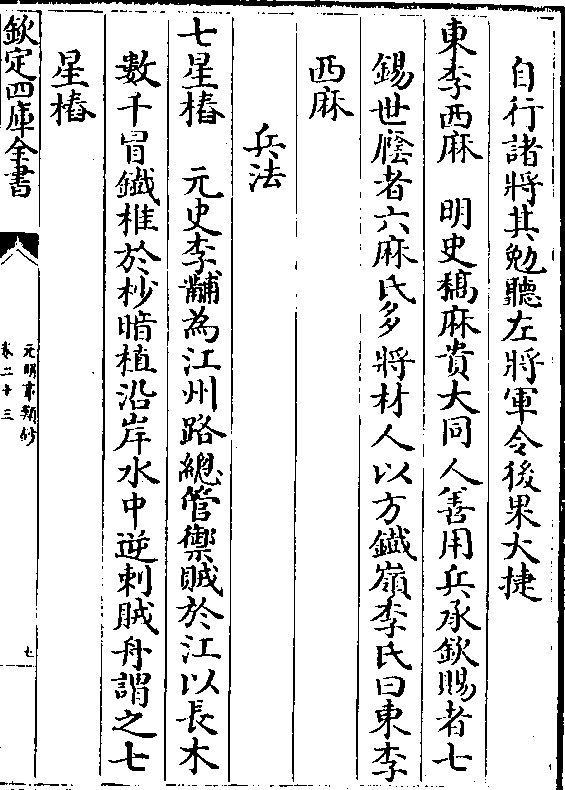 自行諸將其勉聽左將軍令後果大捷
東李西麻　明史稿麻貴大同人善用兵承欽賜者七
錫世廕者六麻氏多將材人以方鐵嶺李氏曰東李
西麻
兵法
七星樁　元史李黼為江州路總管禦賊於江以長木
數千冒鐵椎於杪暗植沿岸水中逆刺賊舟謂之七
星樁
欽定四庫全書
元明事類鈔
卷二十三
七